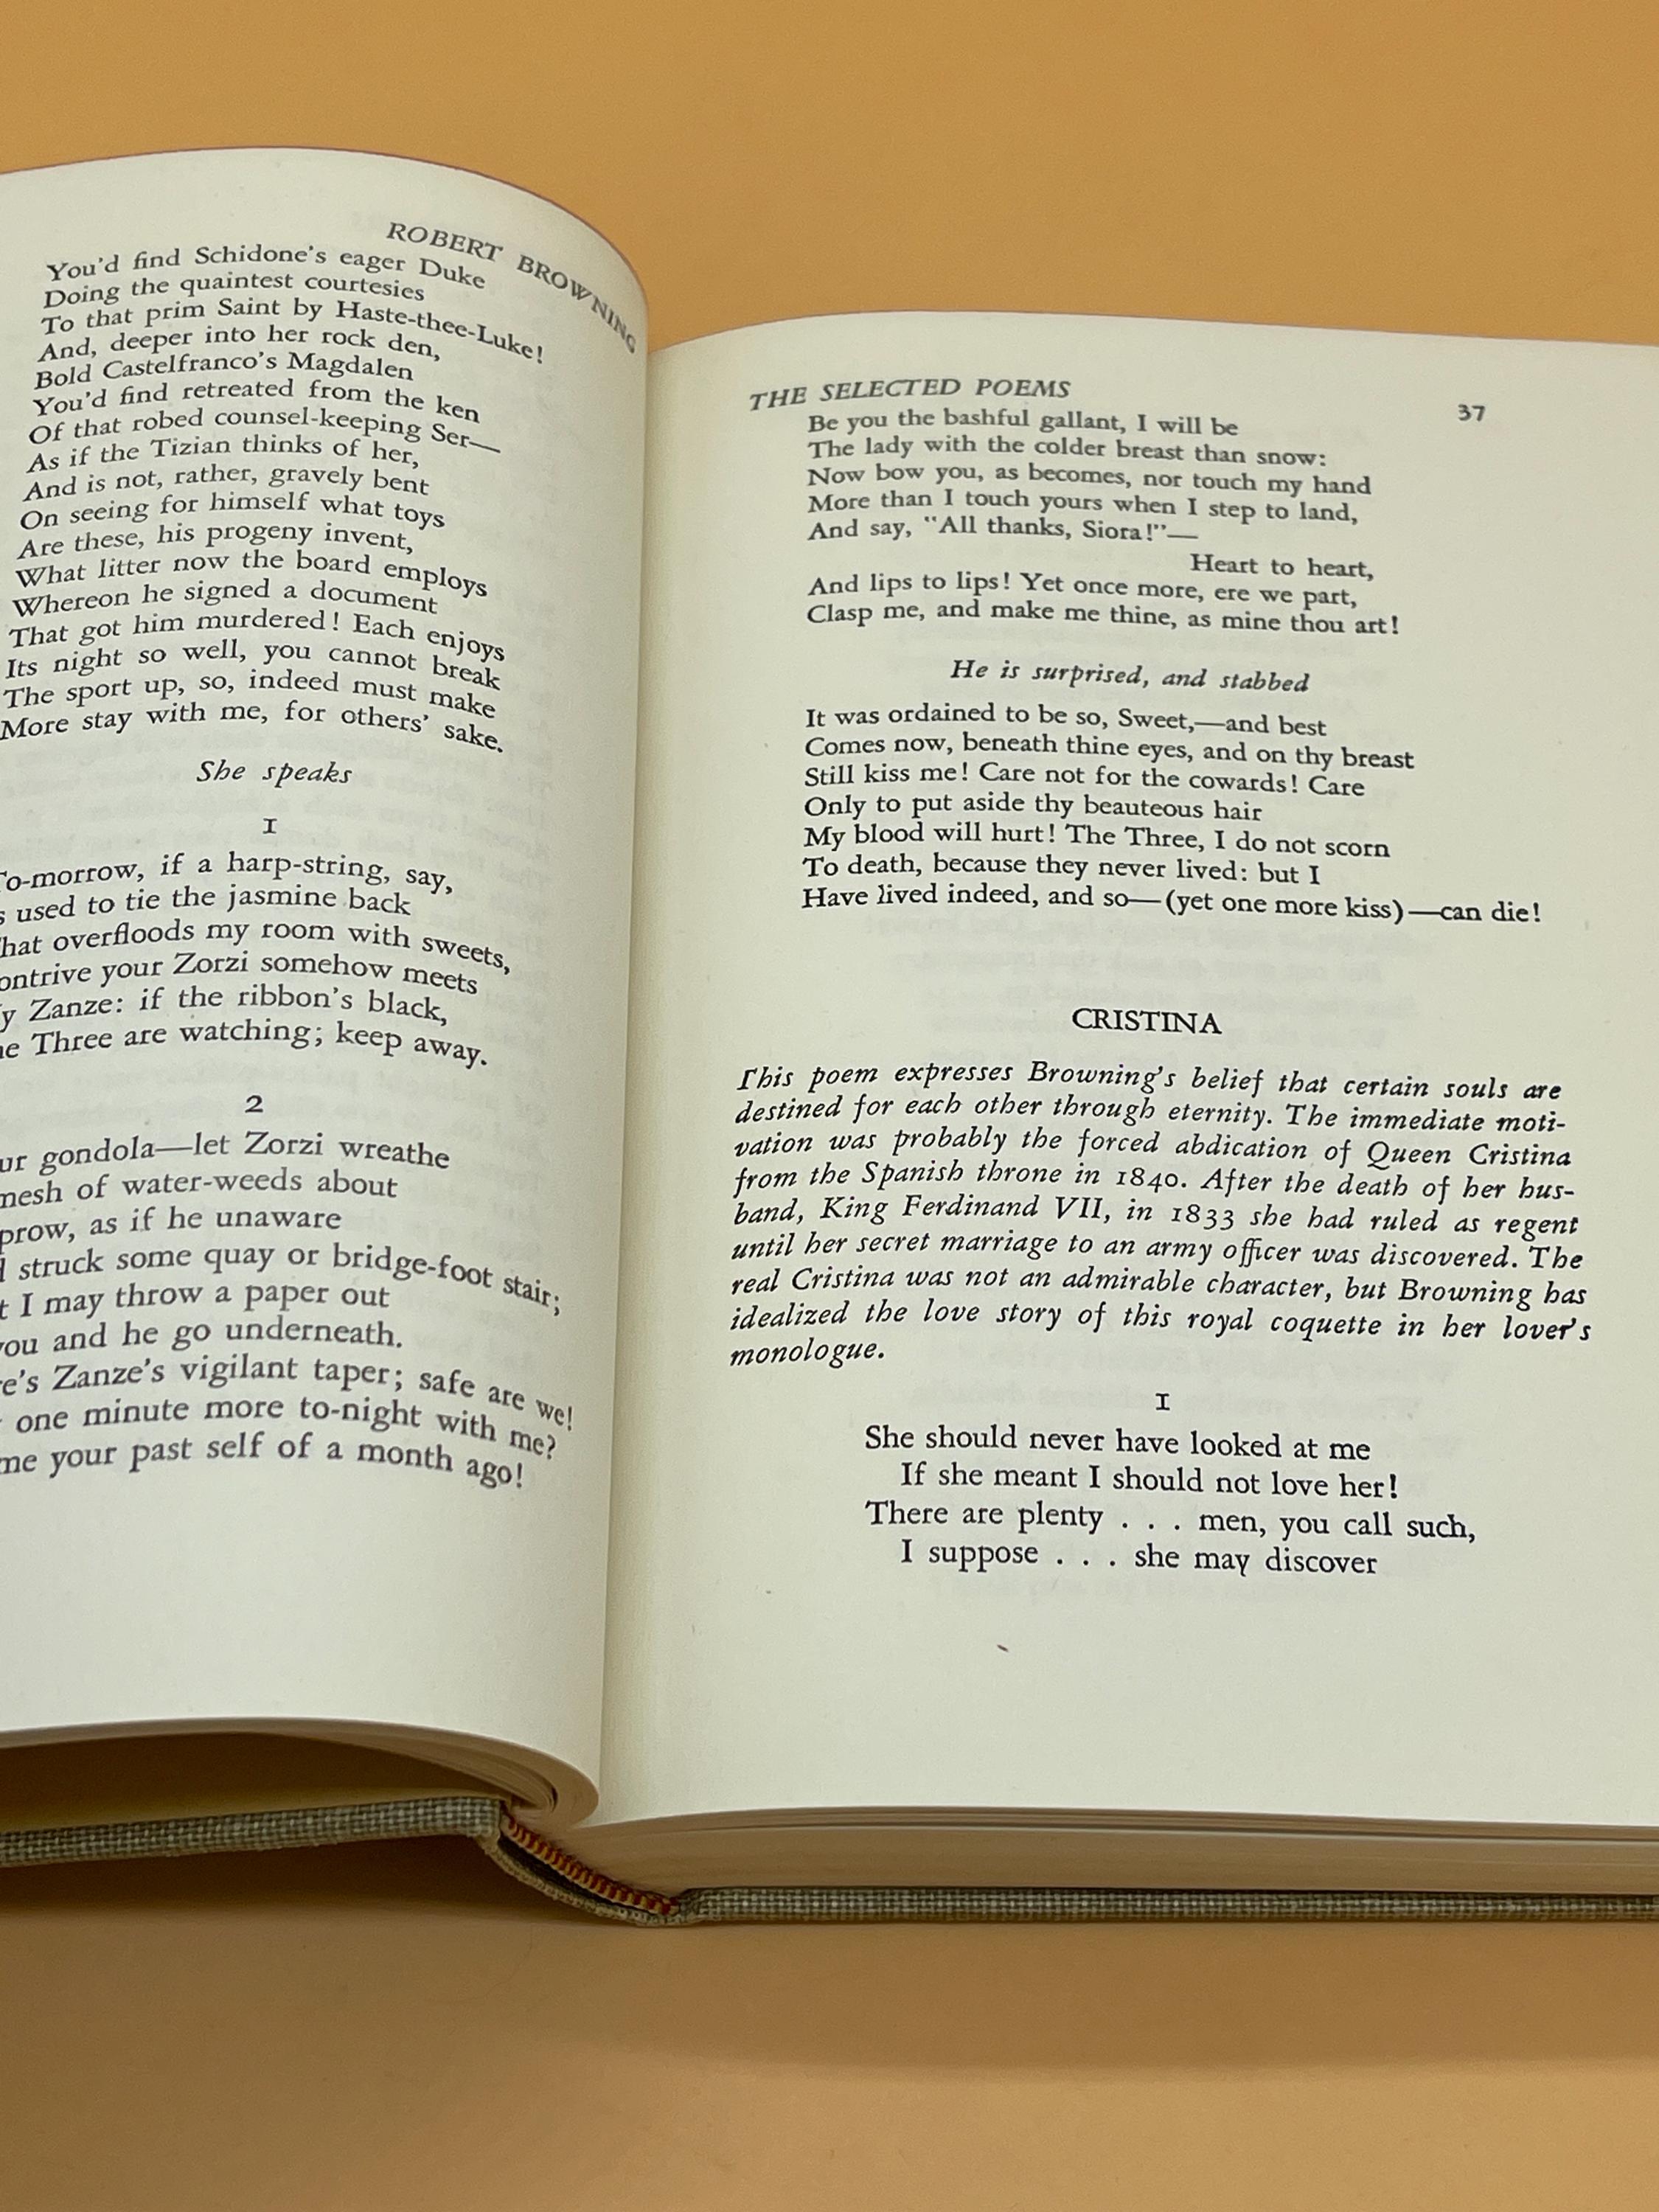 ROBERT BROWNING
You'd find Schidone's eager Duke
Doing the quaintest courtesies
To that prim Saint by Haste-thee-Luke!
And, deeper into her rock den,
Bold Castelfranco's Magdalen
You'd find retreated from the ken
Of that robed counsel-keeping Ser—
As if the Tizian thinks of her,
And is not, rather, gravely bent
On seeing for himself what toys
Are these, his progeny invent,
What litter now the board employs
Whereon he signed a document
That got him murdered! Each enjoys
Its night so well, you cannot break
The sport up, so, indeed must make
More stay with me, for others' sake.
She speaks
1
To-morrow, if a harp-string, say,
used to tie the jasmine back
That overfloods my room with sweets,
Contrive your Zorzi somehow meets
Zanze: if the ribbon's black,
Three are watching; keep away.
2
gondola—let Zorzi wreathe
mesh of water-weeds about
prow, as if he unaware
struck some quay or bridge-foot stair;
I may throw a paper out
you and he go underneath.
Zanze's vigilant taper; safe are we!
one minute more to-night with me?
me your past self of a month ago!
THE SELECTED POEMS 37
Be you the bashful gallant, I will be
The lady with the colder breast than snow:
Now bow you, as becomes, nor touch my hand
More than I touch yours when I step to land,
And say, "All thanks, Siora!"—
Heart to heart,
And lips to lips! Yet once more, ere we part,
Clasp me, and make me thine, as mine thou art!
He is surprised, and stabbed
It was ordained to be so, Sweet,—and best
Comes now, beneath thine eyes, and on thy breast
Still kiss me! Care not for the cowards! Care
Only to put aside thy beauteous hair
My blood will hurt! The Three, I do not scorn
To death, because they never lived: but I
Have lived indeed, and so—(yet one more kiss)—can die!
CRISTINA
This poem expresses Browning's belief that certain souls are
destined for each other through eternity. The immediate moti-
vation was probably the forced abdication of Queen Cristina
from the Spanish throne in 1840. After the death of her hus-
band, King Ferdinand VII, in 1833 she had ruled as regent
until her secret marriage to an army officer was discovered. The
real Cristina was not an admirable character, but Browning has
idealized the love story of this royal coquette in her lover's
monologue.
1
She should never have looked at me
If she meant I should not love her!
There are plenty . . . men, you call such,
I suppose . . . she may discover